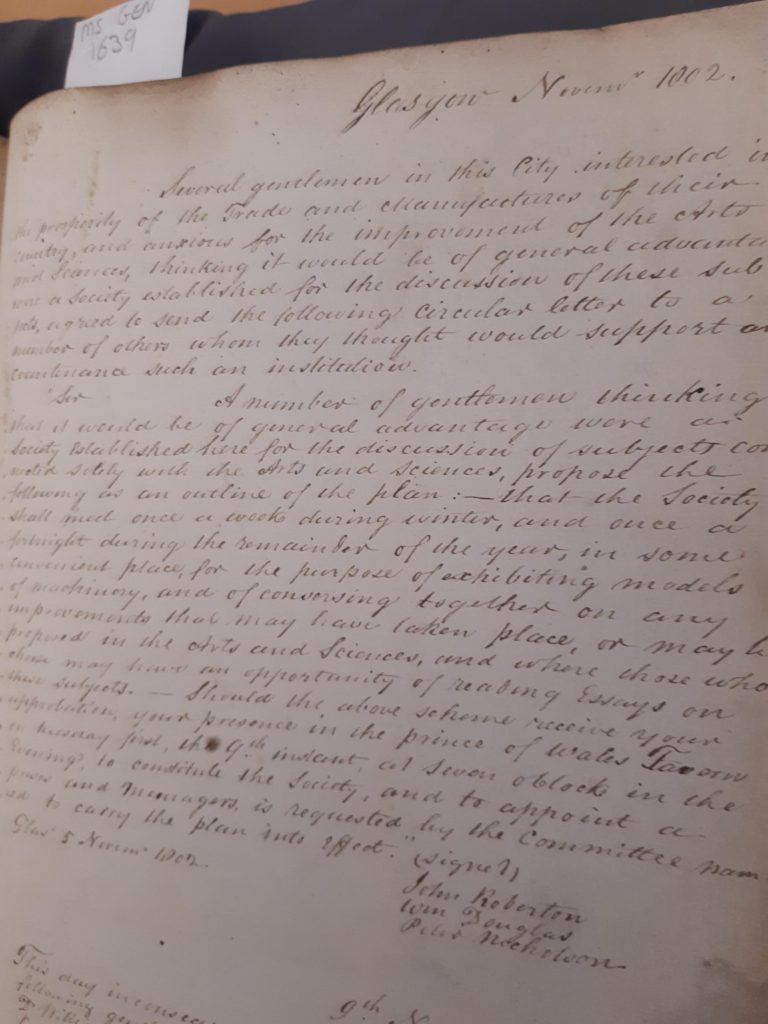 MS GEN
1639
Glasgow Novemr 1802.
Several gentlemen in this City interested in
the prosperity of the Trade and Manufactures of their
country, and anxious for the improvement of the Arts
and Sciences, thinking it would be of general advanta
were a Society established for the discussion of these sub
jects, agreed to send the following circular letter to a
number of others whom they thought would support an
countenance such an institution.
"Sir A number of gentlemen thinking
that it would be of general advantage were a
Society Established here for the discussion of subjects con
nected solely with the Arts and Sciences, propose the
following as an outline of the plan:— that the Society
shall meet once a week during winter, and once a
fortnight during the remainder of the year, in some
convenient place, for the purpose of exhibiting models
of machinery, and of conversing together on any
improvements that may have taken place, or may b
proposed in the Arts and Sciences, and where those who
chuse may have an opportunity of reading Essays on
these subjects. — Should the above scheme receive your
approbation, your presence in the prince of Wales Tavern
on tuesday first, the 9th instant, at seven oClock in the
Evening, to constitute the Society, and to appoint a
preses and Mannagers, is requested by the Committee nam
ed to carry the plan into effect."
(signed)
Glasw 5 Novemr 1802.
John Roberton
Wm Douglas
Peter Nicholson
9th N
This day in conseq
following gent